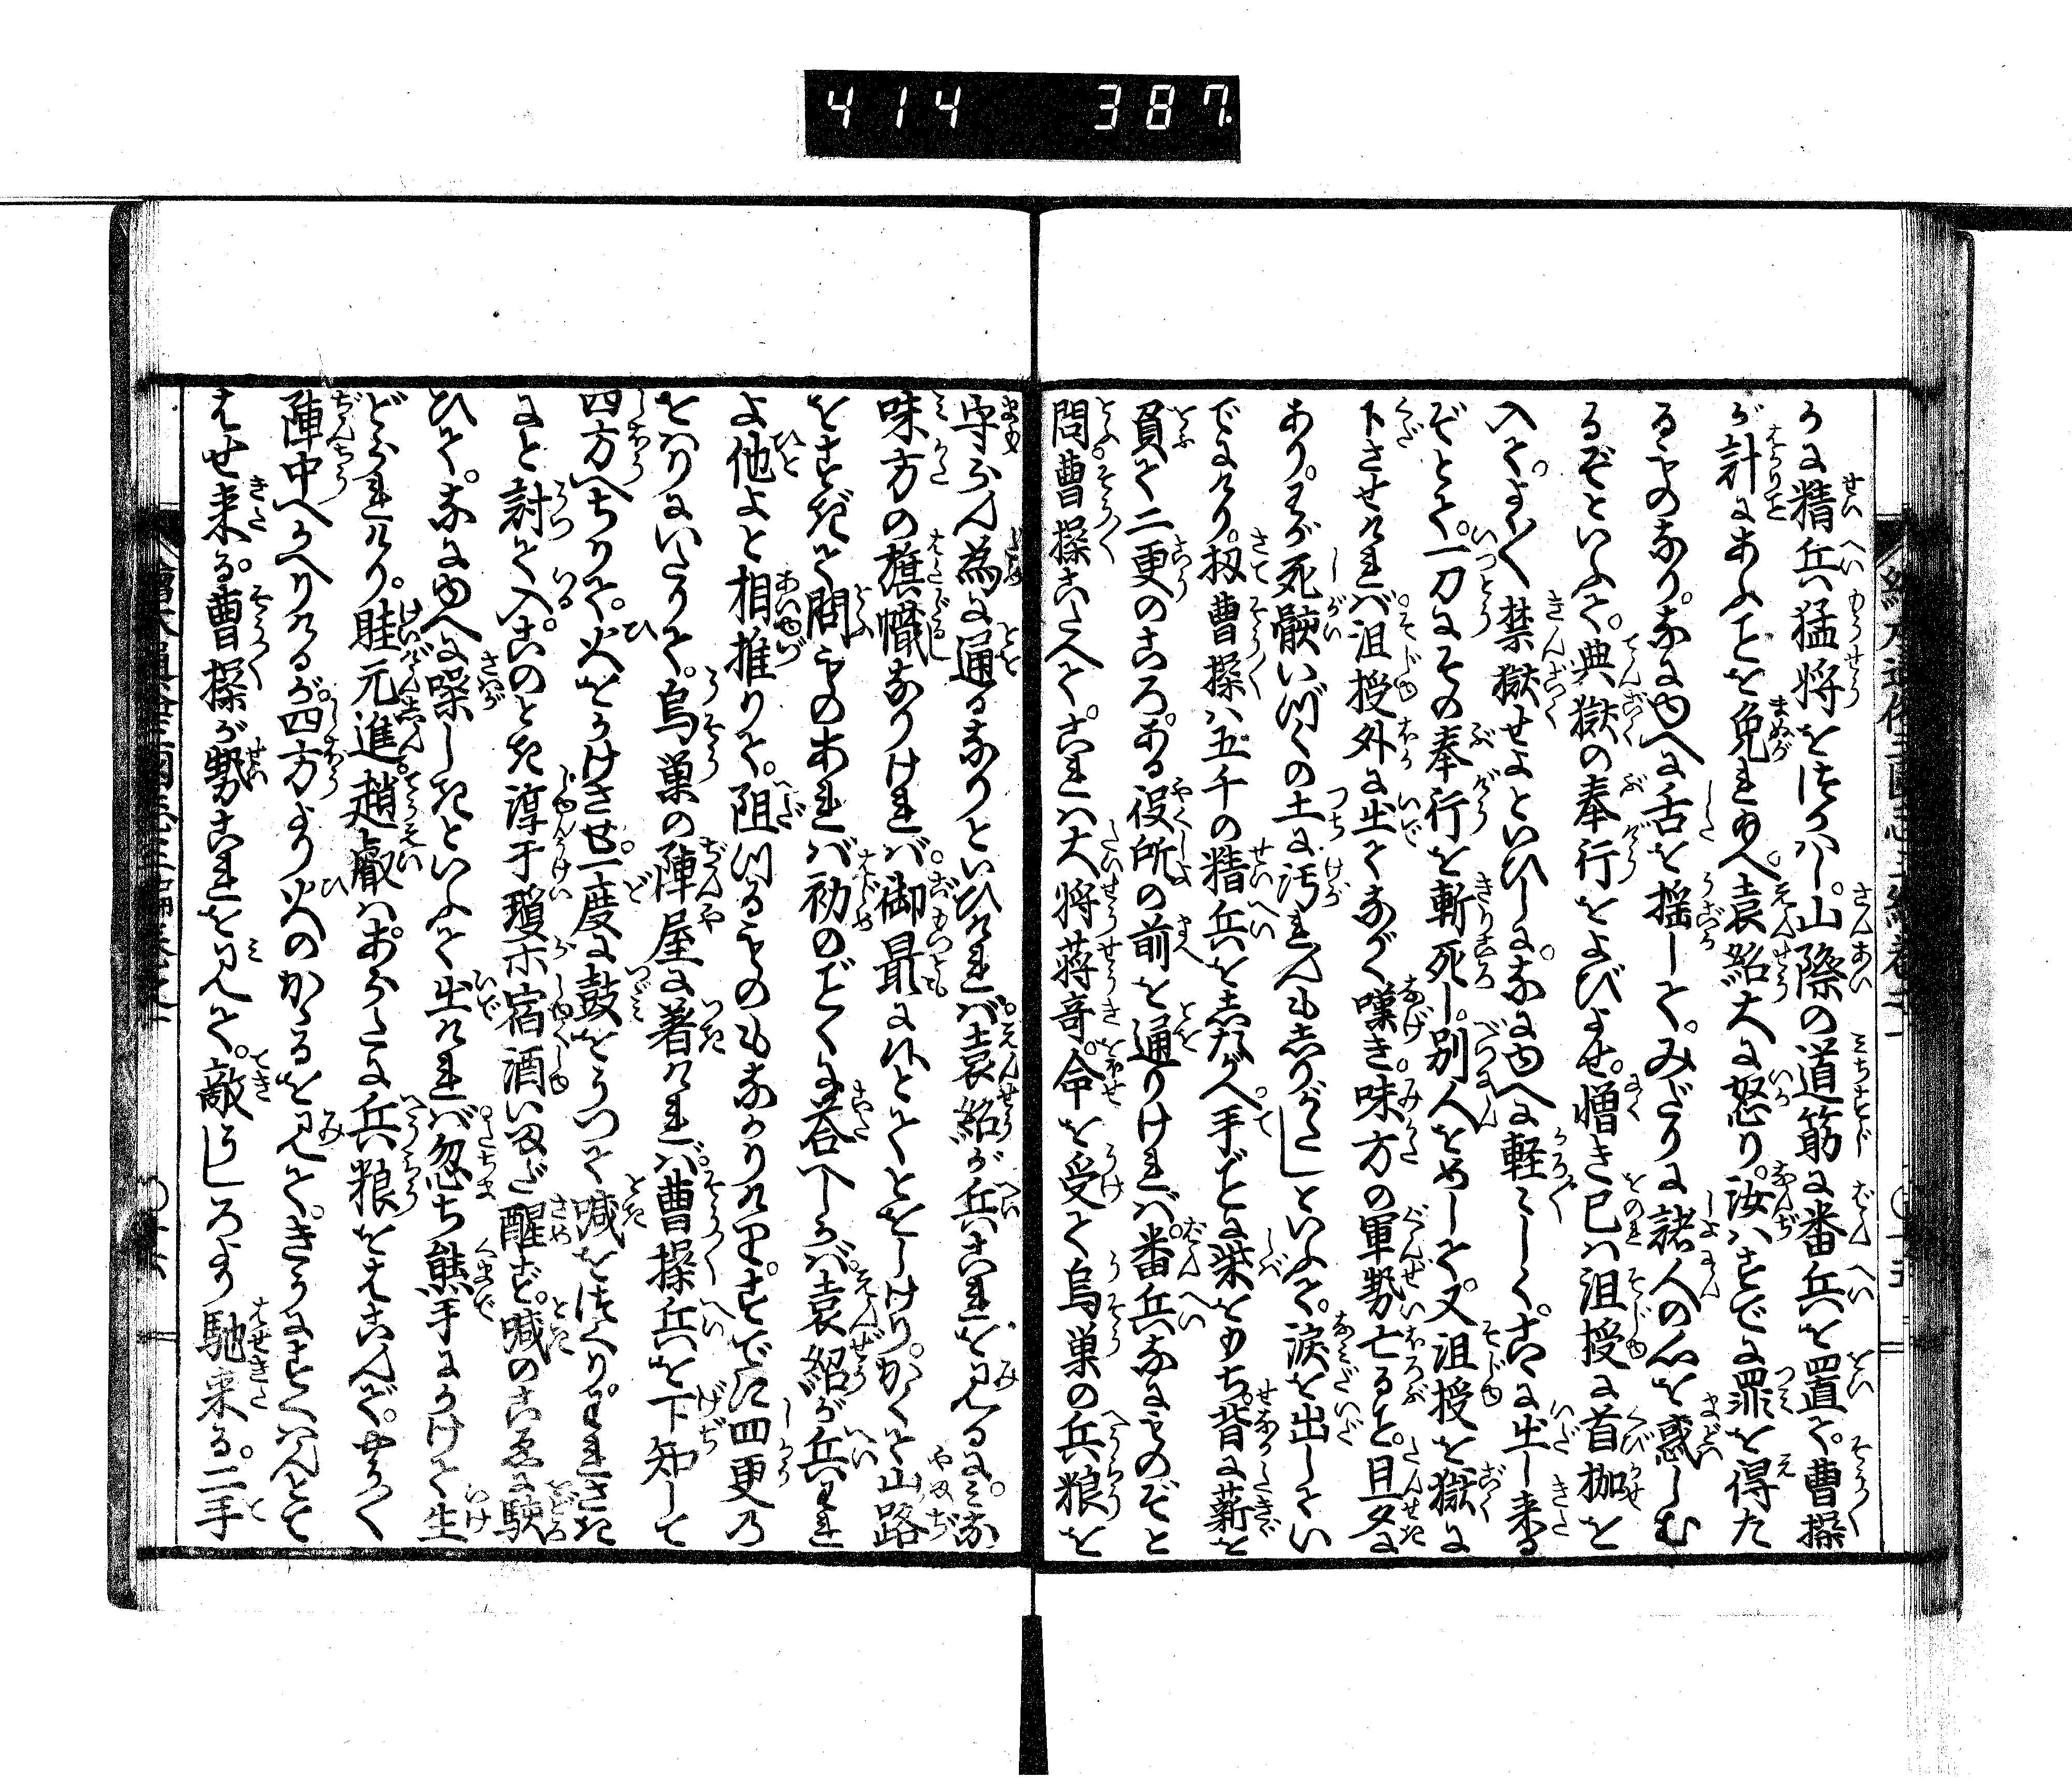 414 387
うに精兵猛将をつかハし。山際の道筋に番兵を置て。曹操
が計にあふことを免れ玉へ。袁紹大に怒り。汝ハすでに罪を得た
るものなり。なにゆへに舌を揺して。みだりに諸人の心を惑しむ
るぞといふて。典獄の奉行をよびよせ。憎き已ハ沮授に首枷を
入て。よく〳〵禁獄せよといひしに。なにゆへに軽〻しく。こゝに出し来る
ぞとて。一刀にその奉行を斬死し。別人をめして。又沮授を獄に
下させければ。沮授外に出てなげく嘆き。味方の軍勢亡ると。旦夕に
あり。わが死骸いづくの土に汚れんもしりがたしといふて。涙を出してい
でにけり。扨曹操ハ五千の精兵をしたがへ。手ごとに柴をもち。背に薪を
負て二更のころ。ある役所の前を通りければ。番兵なにものぞと
問。曹操こたへて。これハ大将蒋奇。命を受て烏巣の兵粮を
守らん為に通るなりといひければ。袁紹が兵これを見るに。みな
味方の旗幟なりければ。御最にれとてとをしけり。かくて山路
をすぎて問ものあれば。初のごとく答へしかば。袁紹が兵われ
よ他よと相推りて。阻つるものもなかりけり。すでに四更の
をはりにいたりて。烏巣の陣屋に著ければ。曹操兵を下知して
四方へちりて。火をかけさせ。一度に鼓をうつて喊をつくり。われさき
にと討て入。このとき淳于瓊示宿酒いまだ醒ず。喊のこゑに駭
ひて。なにゆへに噪しきといふて出ければ。忽ち熊手にかけて生
どられけり。眭元進趙叡ハおなじくに兵粮をはこんで。やうやく
陣中へかへりけるが。四方より火のかゝるを見て。きうにすくハんとて
はせ来る。曹操が勢これを見て。敵うしろより馳来る。二手